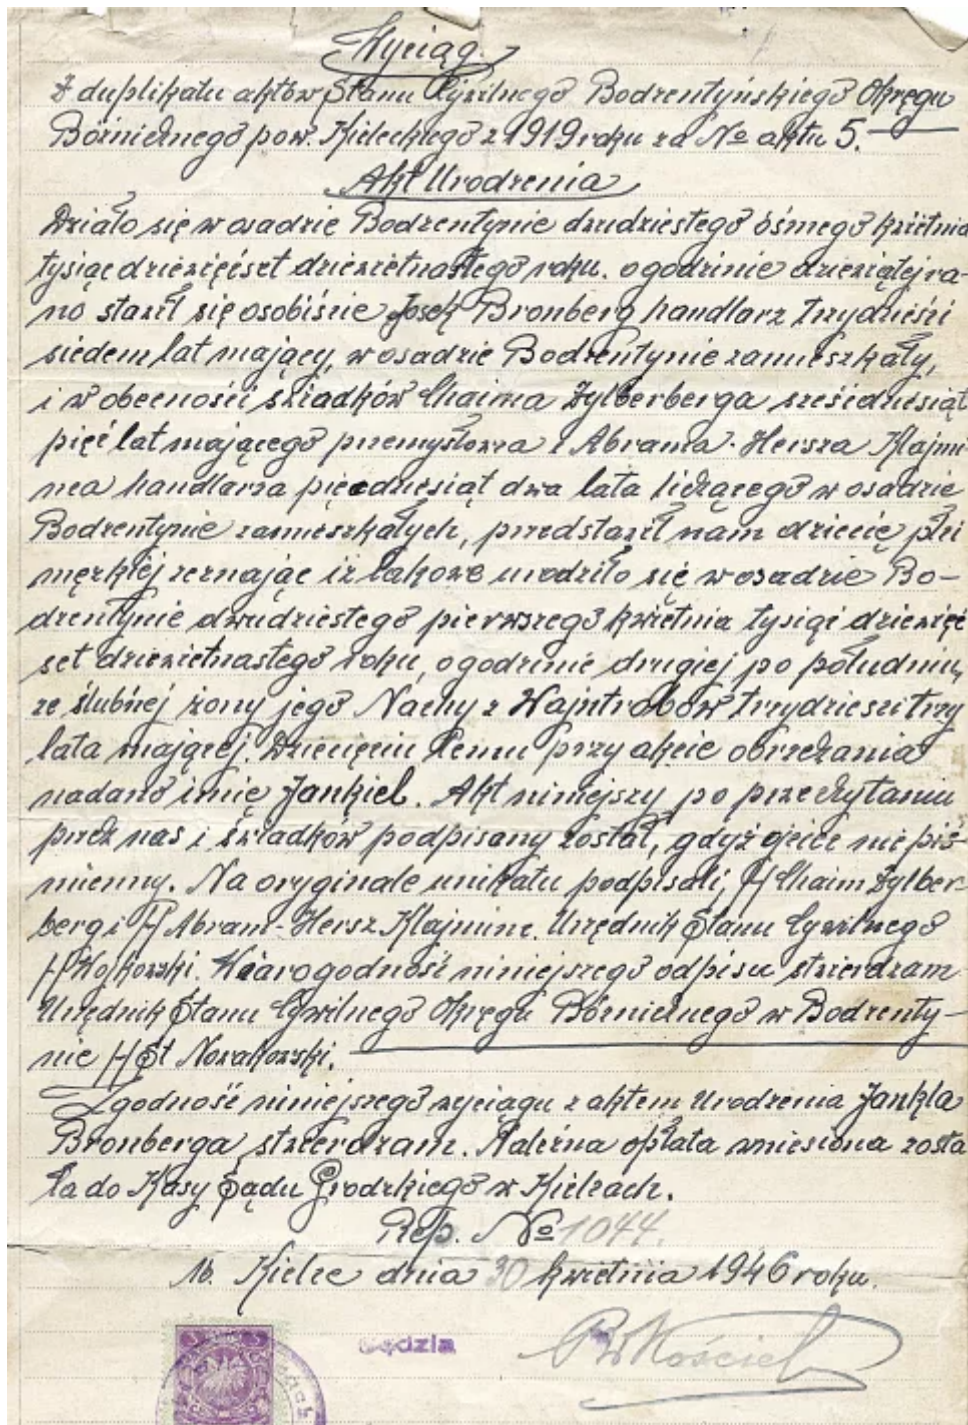 Wyciąg.
Z duplikatu aktów Stanu Cywilnego Bodzentyńskiego Okręgu
Bóżnicznego pow. Kieleckiego z 1919 roku za No aktu 5.
Akt Urodzenia
Działo się w osadzie Bodzentynie dwudziestego ósmego kwietnia
tysiąc dziewięćset dziewietnastego roku. o godzinie dziewiątej ra-
no stawił się osobiście Josek Bronberg handlarz trzydzieści
siedem lat mający, w osadzie Bodzentynie zamieszkały,
i w obecności świadków Chaima Zylberberga sześćdziesiąt
pięć lat mającego przemysłowca i Abrama-Hersza Klajmi-
nca handlarza piędziesiąt dwa lata liczącego w osadzie
Bodzentynie zamieszkałych, przedstawił nam dziecię płci
męzkiej zeznając iż takowe urodziło się w osadzie Bo-
dzentynie dwudziestego pierwszego kwietnia tysiąc dziewięć
set dziewietnastego roku, o godzinie drugiej po południu,
ze ślubnej żony jego Nachy z Wajntrobów trzydzieści trzy
lata mającej. Dziecięciu temu przy akcie obrzezania
nadano imię Jankiel. Akt niniejszy po przeczytaniu
przez nas i świadków podpisany został, gdyż ojciec nie piś-
mienny. Na oryginale unikatu podpisali; /-/ Chaim Zylber-
berg i /-/ Abram-Hersz Klajminc. Urzędnik Stanu Cywilnego
/-/ Wojkowski. Wiarogodność niniejszego odpisu stwierdzam
Urzędnik Stanu Cywilnego Okręgu Bóżnicznego w Bodzenty-
nie /-/ St Nowakowski.
Zgodność niniejszego wyciągu z aktem Urodzenia Jankla
Bronberga stwierdzam. Należna opłata wniesiona zosta
ła do Kasy Sądu Grodzkiego w Kielcach.
Rep. No 1044.
M. Kielce dnia 30 kwietnia 1946 roku.
Sędzia